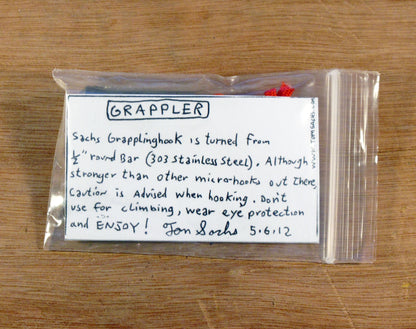 GRAPPLER
Sachs Grapplinghook is turned from
1/2" round Bar (303 stainless steel). Although
stronger than other micro-hooks out there,
Caution is Advised when hooking. Don't
use for climbing, wear eye protection
and ENJOY! Tom Sachs 5.6.12
www.TOMSACHS.com